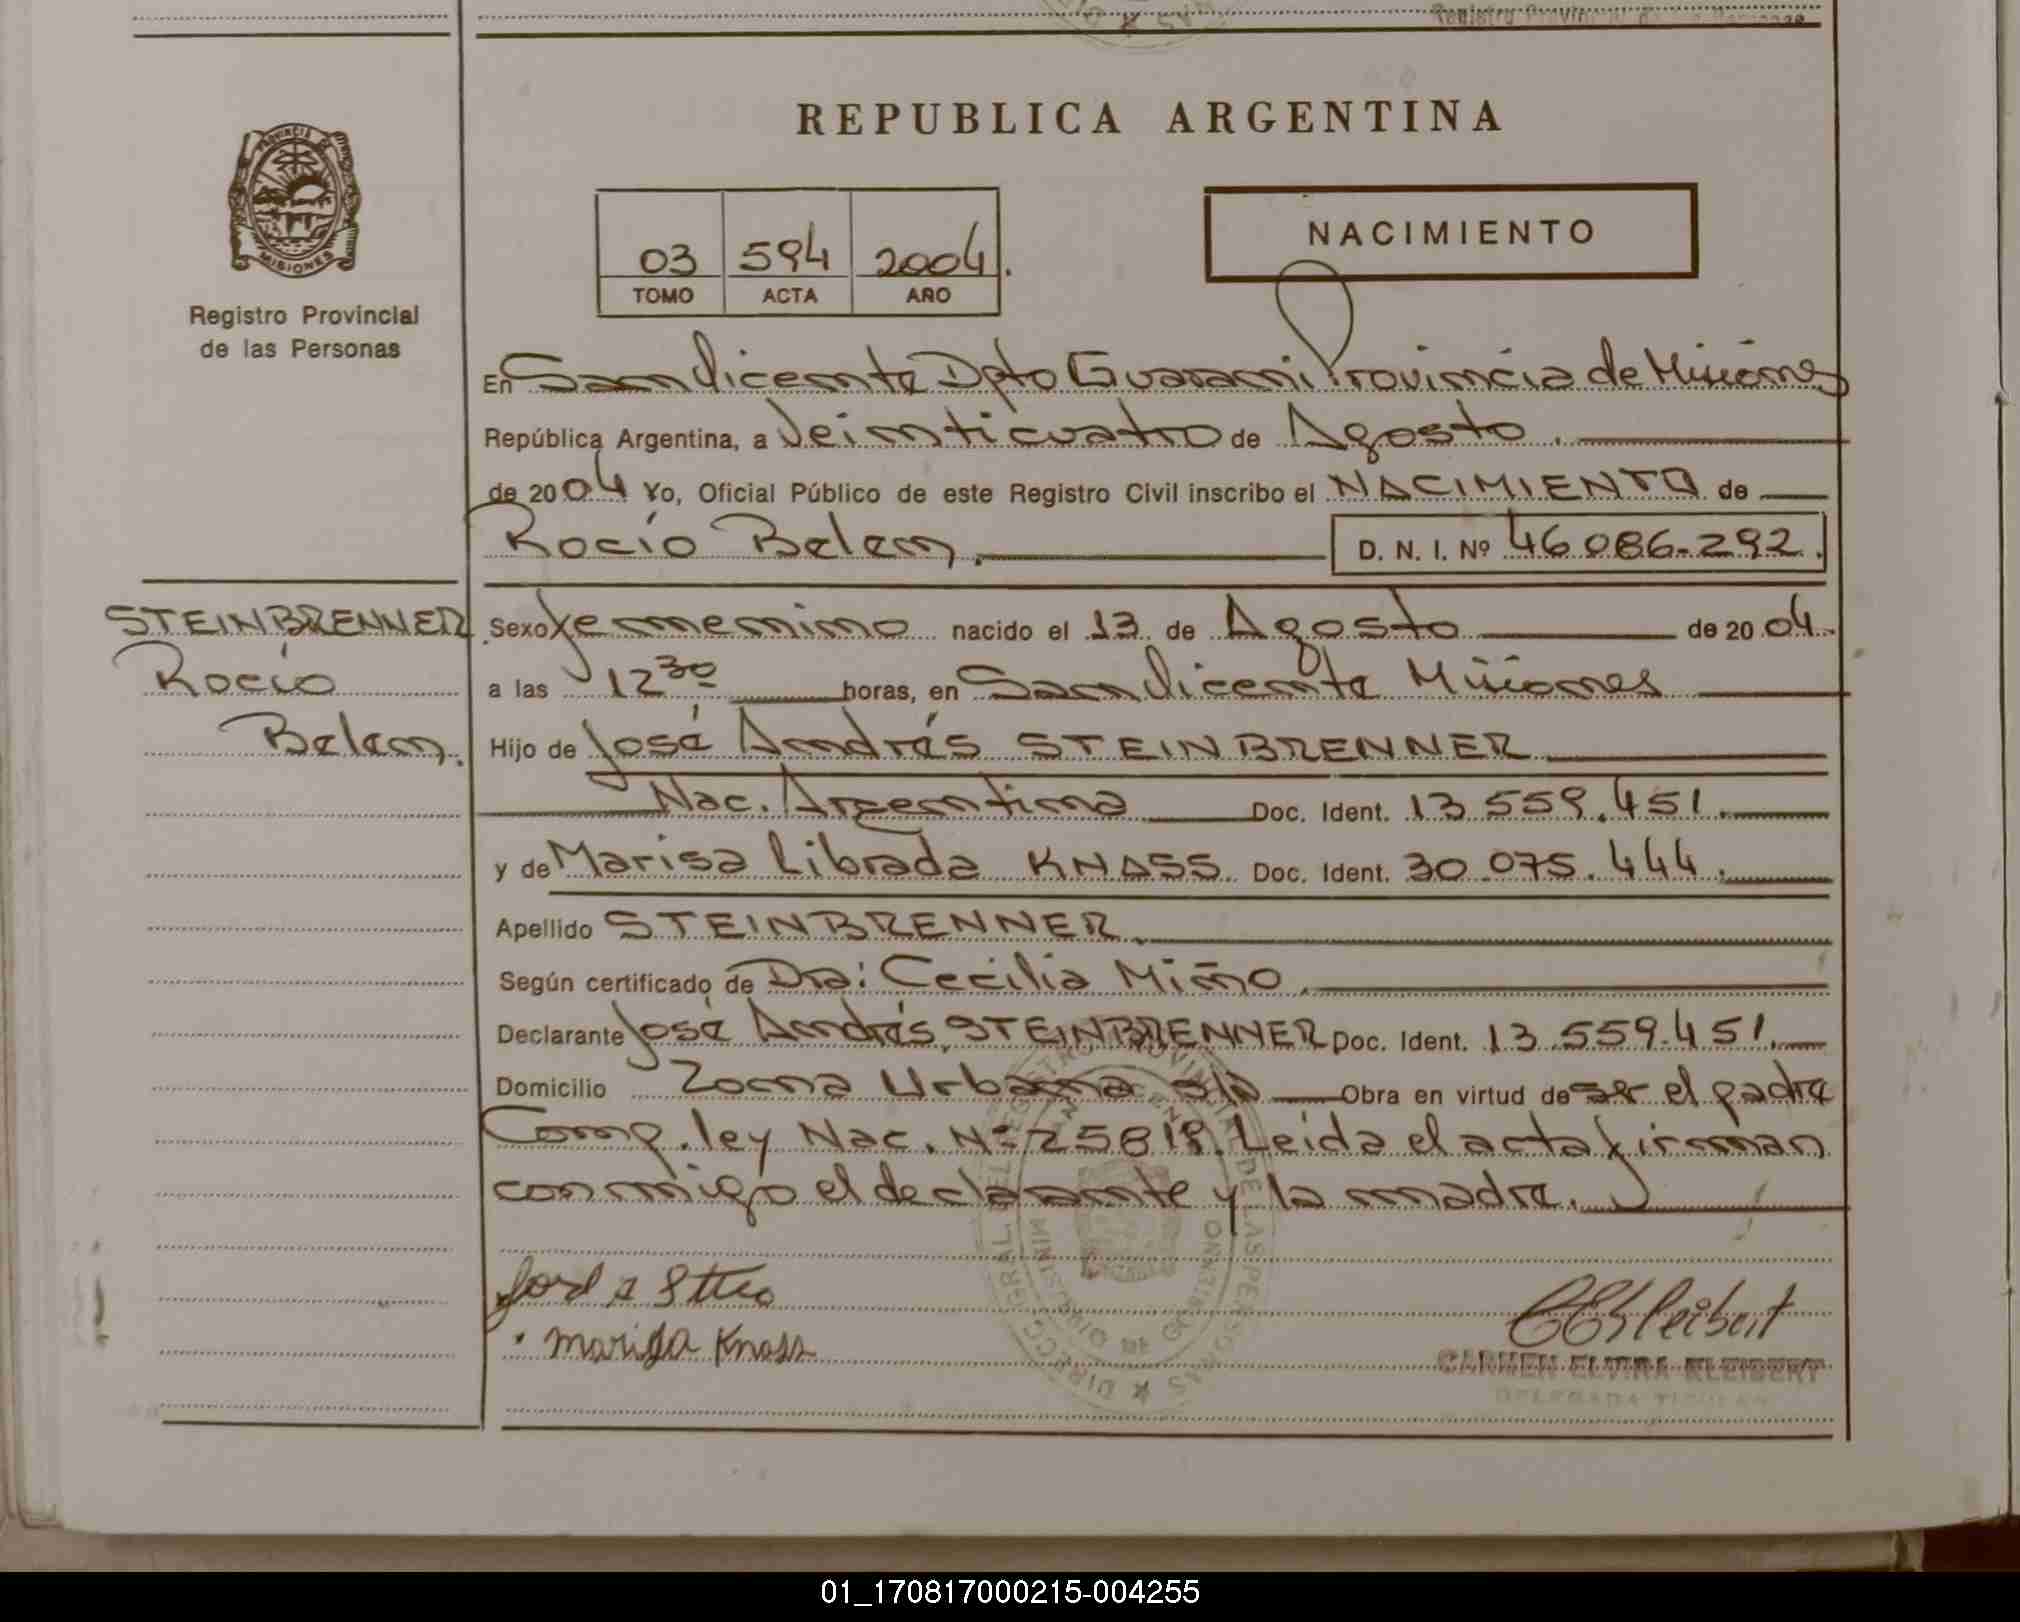 Registro Provincial de las Personas
REPUBLICA ARGENTINA
PROVINCIA DE MISIONES
Registro Provincial
de las Personas
03 594 2004.
TOMO ACTA AÑO
NACIMIENTO
En San Vicente Dpto Guarani Provincia de Misiones
República Argentina, a Veinticuatro de Agosto.
de 2004 Yo, Oficial Público de este Registro Civil inscribo el NACIMIENTO de
Rocío Belen. D. N. I. Nº 46.086.292.
STEINBRENNER
Rocío
Belen.
Sexo Femenino nacido el 13 de Agosto de 2004.
a las 12 30 horas, en San Vicente Misiones
Hijo de José Andrés STEINBRENNER
Nac. Argentina Doc. Ident. 13.559.451.
y de Marisa Librada KNASS Doc. Ident. 30.075.444.
Apellido STEINBRENNER.
Según certificado de Dra: Cecilia Miño.
Declarante José Andrés STEINBRENNER Doc. Ident. 13.559.451.
Domicilio Zona Urbana Obra en virtud de ser el padre
Comp. ley Nac. Nº 25818. Leida el acta firman
conmigo el declarante y la madre.
Marisa Knass
CARMEN ELVIRA KLEIBERT
DELEGADA TITULAR
DIRECC. GRAL. DEL REGISTRO PROVINCIAL DE LAS PERSONAS
01_170817000215-004255